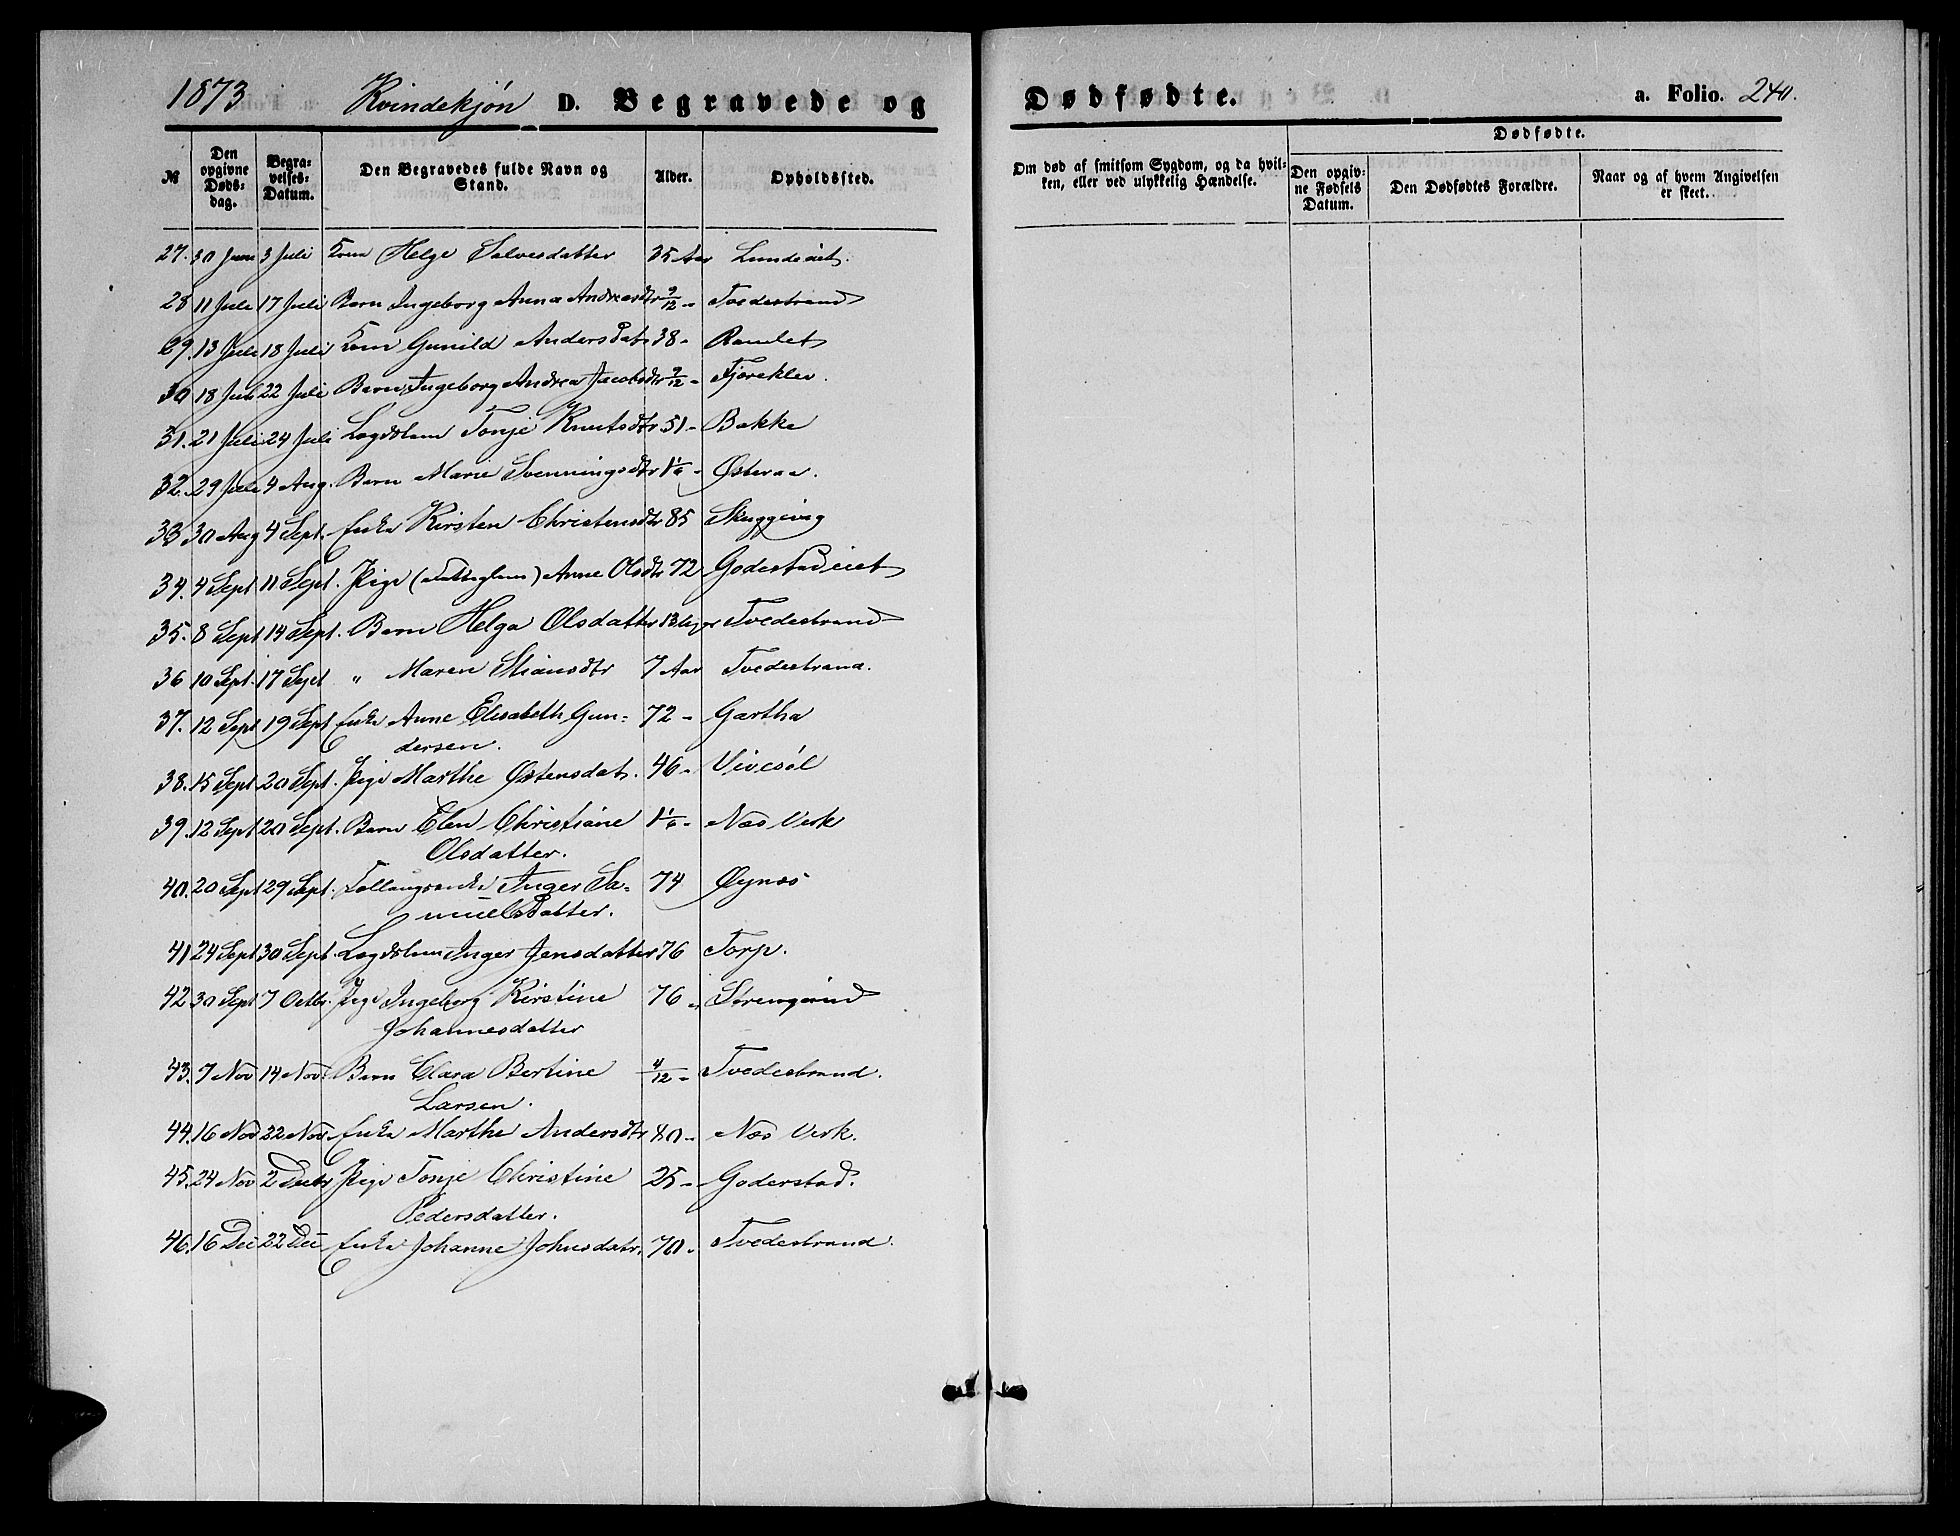 1873 Kvindekjøn D. Begravede og Dødfødte. a. Folio. 240.
№ Den opgivne Døds-dag. Begra-velses-Datum. Den Begravedes fulde Navn og Stand. Alder. Opholdssted. Om død af smitsom Sygdom, og da hvil-ken, eller ved ulykkelig Hændelse. Dødfødte. Den opgiv-ne Fødsels Datum. Den Dødfødtes Forældre. Naar og af hvem Angivelsen er skeet.
27. 30 Juni 3 Juli Kone Helge Salvesdatter 35 Aar Lundeiet.
28 11 Juli 17 Juli Barn Ingeborg Anna Andreasdtr 9/12 - Tvedestrand
29. 13 Juli 18 Juli Kone Gunild Andersdat. 38 - Ramlet
30 18 Juli 22 Juli Barn Ingeborg Andrea Jacobsdtr 9/12 - Fjæreklev.
31. 21 Juli 24 Juli Lægdslem Tonje Knutsdtr 51 - Bakke
32. 29 Juli 4 Aug. Barn Marie Svenningsdtr Østeraa.
33 30 Aug 4 Sept. Enke Kirsten Christensdtr 85 Skuggevig
34. 4 Sept 11 Sept. Pige Anne Olsdtr 72 Goderstadeiet
35. 8 Sept 14 Sept. Barn Helga Olsdatter 13 Uger Tvedestrand
36 10 Sept. 17 Sept " Maren Stiansdtr 7 Aar Tvedestrand.
37. 12 Sept 19 Sept Enke Anne Elisabeth Gun- 72 - Gartha
dersen.
38. 15 Sept. 20 Sept. Pige Marthe Østensdat. 46 - Vivesøl
39. 12 Sept 20 Sept. Barn Elen Christiane Næs Verk
Olsdatter.
40. 20 Sept 29 Sept. Inger Sa- 74 Øynæs
muelsdatter.
41 24 Sept 30 Sept. Lægdslem Inger Jensdatter 76 Torp.
42 30 Sept 7 Octbr. Pige Ingeborg Kirstine 76 -
Johannesdatter
43. 7 Nov 14 Nov. Barn Clara Bertine 4/12 - Tvedestrand.
Larsen.
44. 16 Nov 22 Nov. Enke Marthe Andersdtr 80 - Næs Verk.
45. 24 Nov 2 Decbr Pige Tonje Christine 25 - Goderstad.
Pedersdatter.
46. 16 Dec 22 Dec Enke Johanne Johnsdatr. 70 - Tvedestrand.